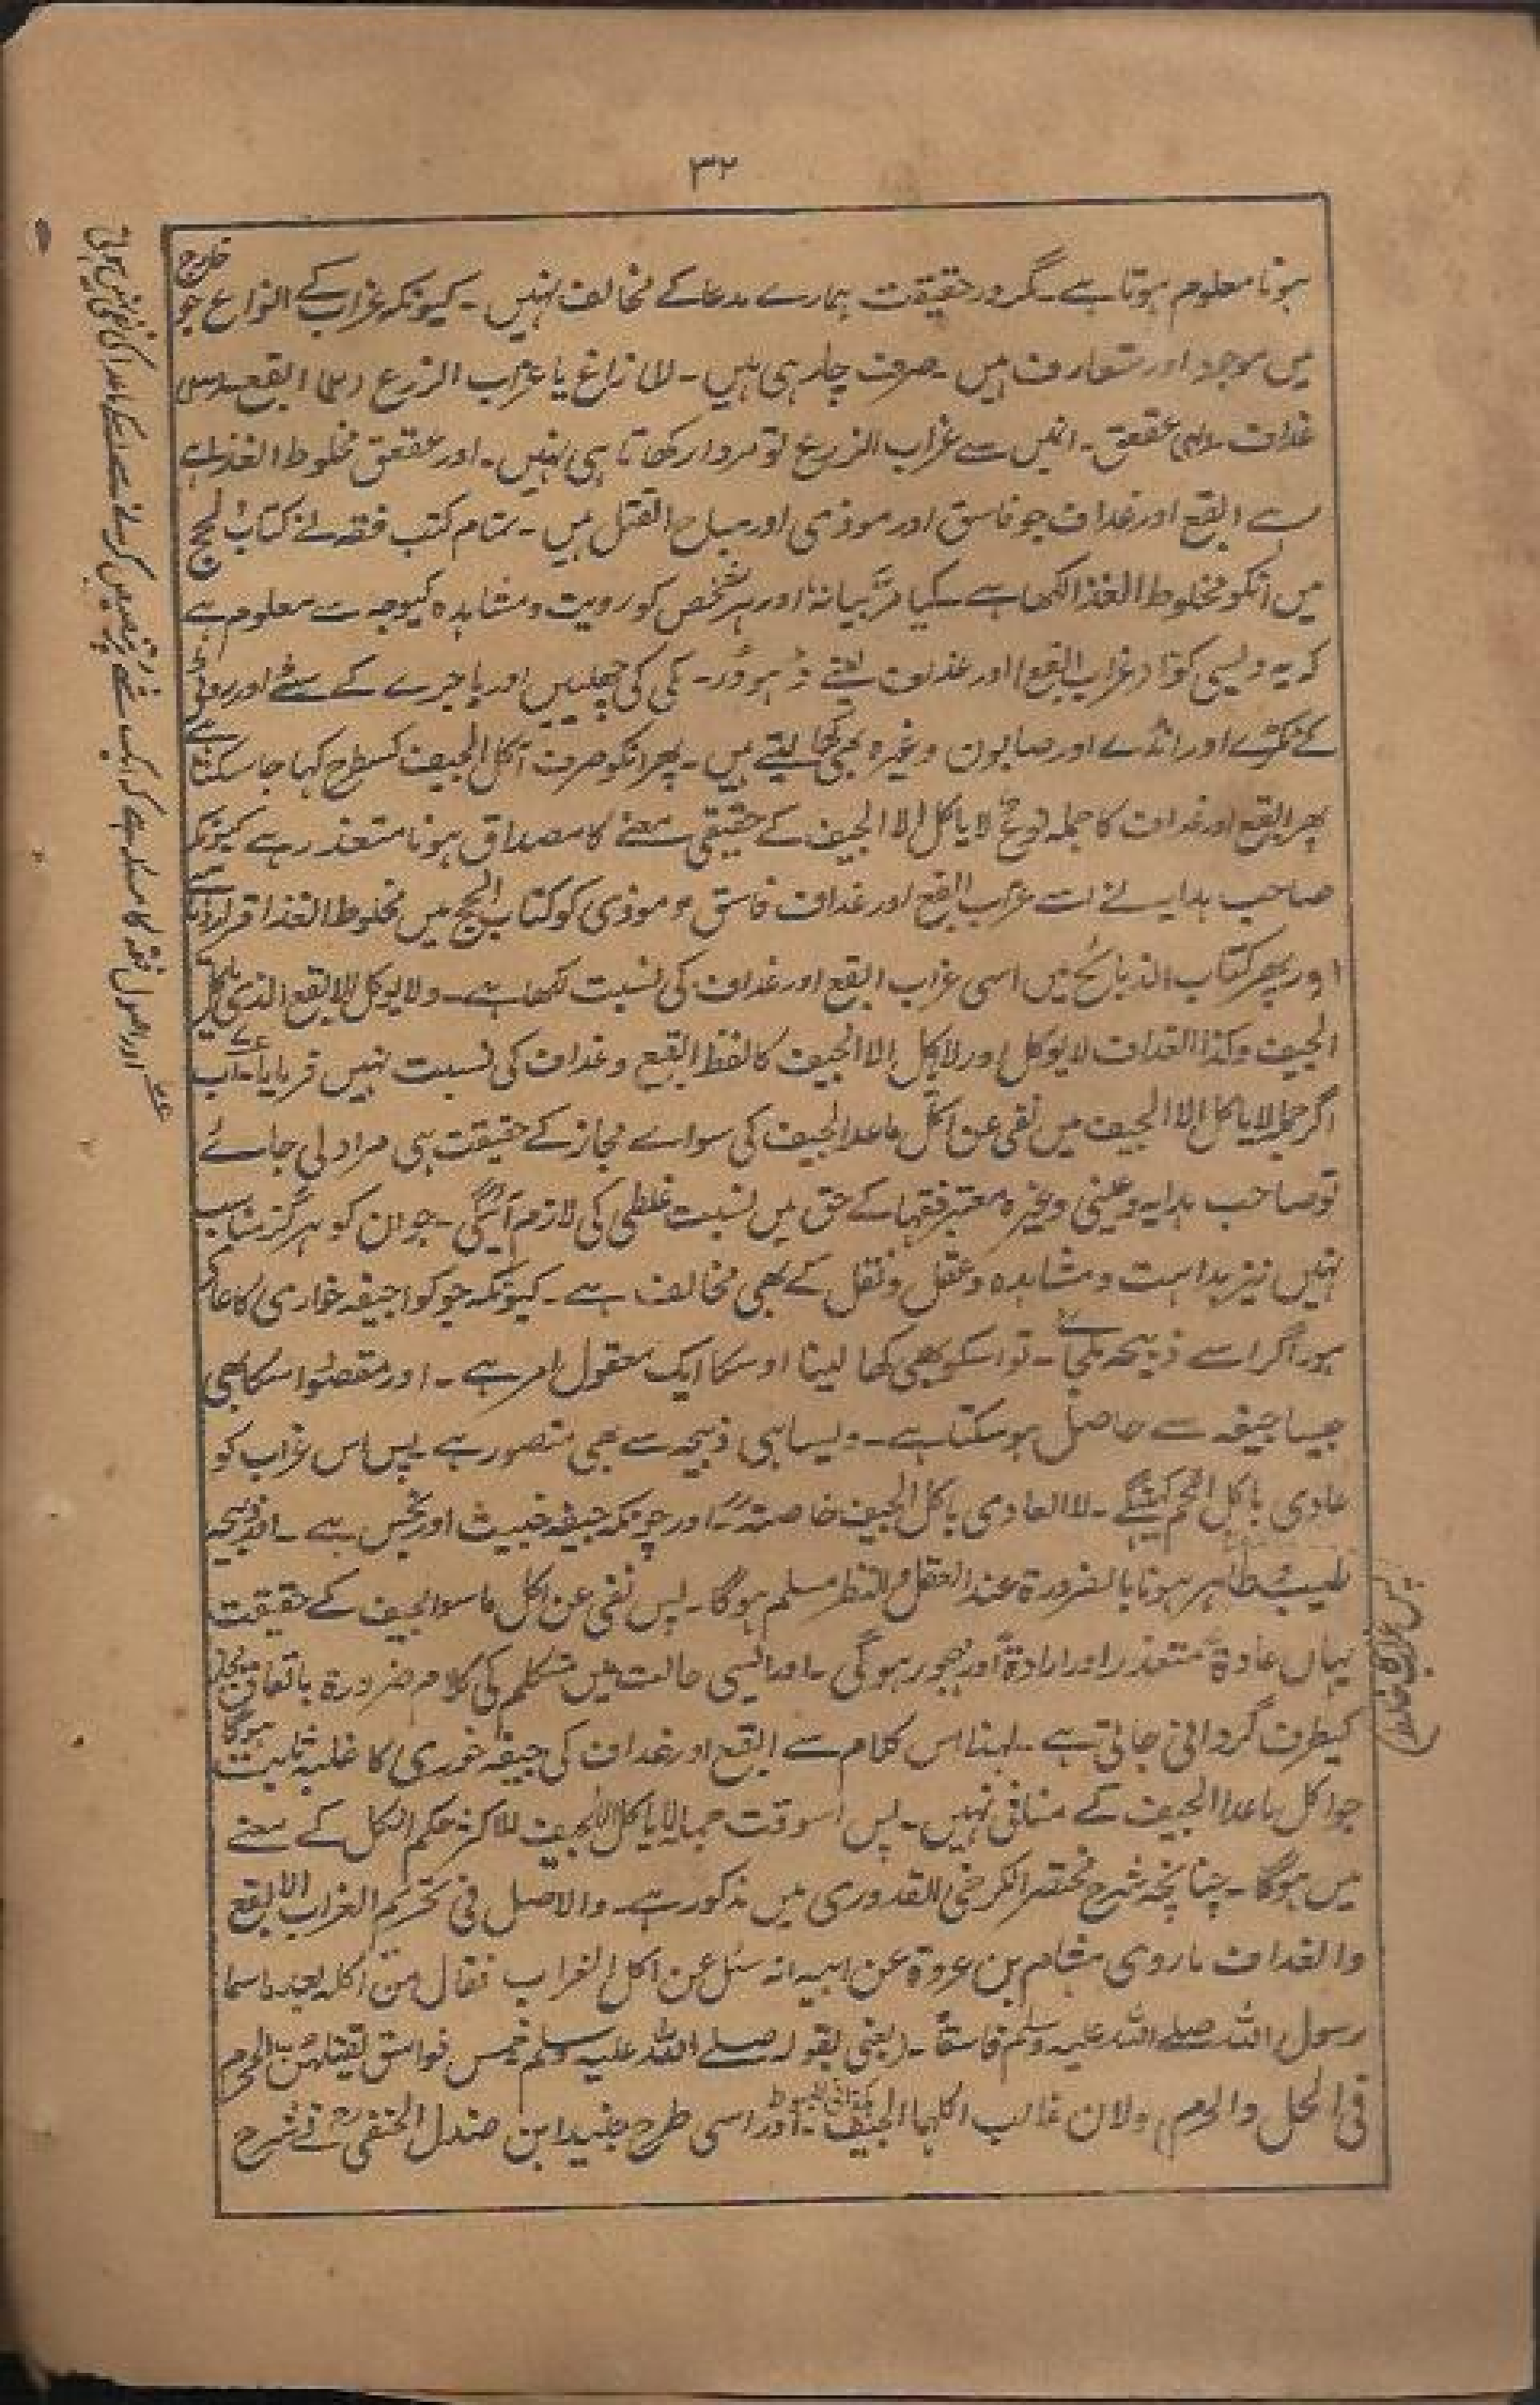 ۳۲
ہونا معلوم ہوتا ہے۔ مگر درحقیقت ہمارے مدعا کے مخالف نہیں۔ کیونکہ غراب کے انواع جو خارج
میں موجود اور متعارف ہیں۔ صرف چار ہی ہیں۔ (۱) زاغ یا غراب الزرع (۲) ابقع (۳)
غداف (۴) عقعق۔ انمیں سے غراب الزرع تو مردار کھاتا ہی نہیں۔ اور عقعق مخلوط الغذا ہے
رہے ابقع اور غداف جو فاسق اور موذی اور مباح القتل ہیں۔ تمام کتب فقہ نے کتاب الحج
میں انکو مخلوط الغذا لکھا ہے۔ کما مرّ بیانہ اور ہر شخص کو رویت و مشاہدہ کیوجہ سے معلوم ہے
کہ یہ دیسی کوّا (غراب ابقع) اور غداف یعنے ڈہوڈر۔ مکی کی چھلییں اور باجرے کے سٹے اور روٹی
کے ٹکڑے اور انڈے اور صابون وغیرہ بھی کھا لیتے ہیں۔ پھر انکو صرف آکل الجیف کسطرح کہا جا سکتا ہے
پھر ابقع اور غداف کا جملہ نوع لا یاکل الا الجیف کے حقیقی معنے کا مصداق ہونا متعذر ہے کیونکہ
صاحب ہدایہ نے اسی غراب ابقع اور غداف فاسق و موذی کو کتاب الحج میں مخلوط الغذا قرار دیا ہے
اور پھر کتاب الذبائح میں اسی غراب ابقع اور غداف کی نسبت لکھا ہے۔ ولا یوکل الابقع الذی یاکل
الجیف وکذا الغداف لا یوکل اور لا یاکل الا الجیف کا لفظ ابقع و غداف کی نسبت نہیں فرمایا۔ اب
اگر جملہ لا یاکل الا الجیف میں نفی عن اکل ماعدا الجیف کی سوائے مجاز کے حقیقت ہی مراد لی جائے
تو صاحب ہدایہ و عینی وغیرہ معتبر فقہا کے حق میں نسبت غلطی کی لازم آئیگی۔ جو ان کو ہرگز مناسب
نہیں نیز بداہت و مشاہدہ و عقل و نقل کے بھی مخالف ہے۔ کیونکہ جو کوا جیفہ خواری کا عادی
ہو۔ اگر اسے ذبیحہ ملجائے۔ تو اسکو بھی کھا لینا اوسکا ایک معقول امر ہے۔ اور مقصود اسکا بھی
جیسا جیفہ سے حاصل ہو سکتا ہے۔ ویسا ہی ذبیحہ سے بھی متصور ہے۔ پس اس غراب کو
عادی باکل اللحم کہینگے۔ لا العادی باکل الجیف خاصۃ۔ اور چونکہ جیفہ خبیث اور نجس ہے۔ اور ذبیحہ
طیب و طاہر ہونا بالضرورۃ عند العقل والنظر مسلم ہوگا۔ پس نفی عن اکل ماسوا الجیف کے حقیقت
یہاں عادۃ متعذر اور ارادۃ اور مہجور ہوگی۔ اور ایسی حالت میں متکلم کی کلام ضرورۃ باتفاق مجاز
کیطرف گردانی جاتی ہے۔ لہذا اس کلام سے ابقع اور غداف کی جیفہ خوری کا غلبہ ثابت ہوگا
جو اکل ماعدا الجیف کے منافی نہیں۔ پس اسوقت جملہ لا یاکل الا الجیف للاکثر حکم الکل کے معنے
میں ہوگا۔ چنانچہ شرح مختصر الکرخی للقدوری میں مذکور ہے۔ والاصل فی تحریم الغراب الابقع
والغداف ما روی ہشام بن عروۃ عن ابیہ انہ سئل عن اکل الغراب فقال من اکلہ بعد ما سماہ
رسول اللہ صلے اللہ علیہ وسلم فاسقاً۔ (یعنی بقولہ صلے اللہ علیہ وسلم خمس فواسق یقتلہن المحرم
فی الحل والحرم) ولان غالب اکلہما الجیف۔ اور اسی طرح جنید ابن صندل الحنفی نے شرح